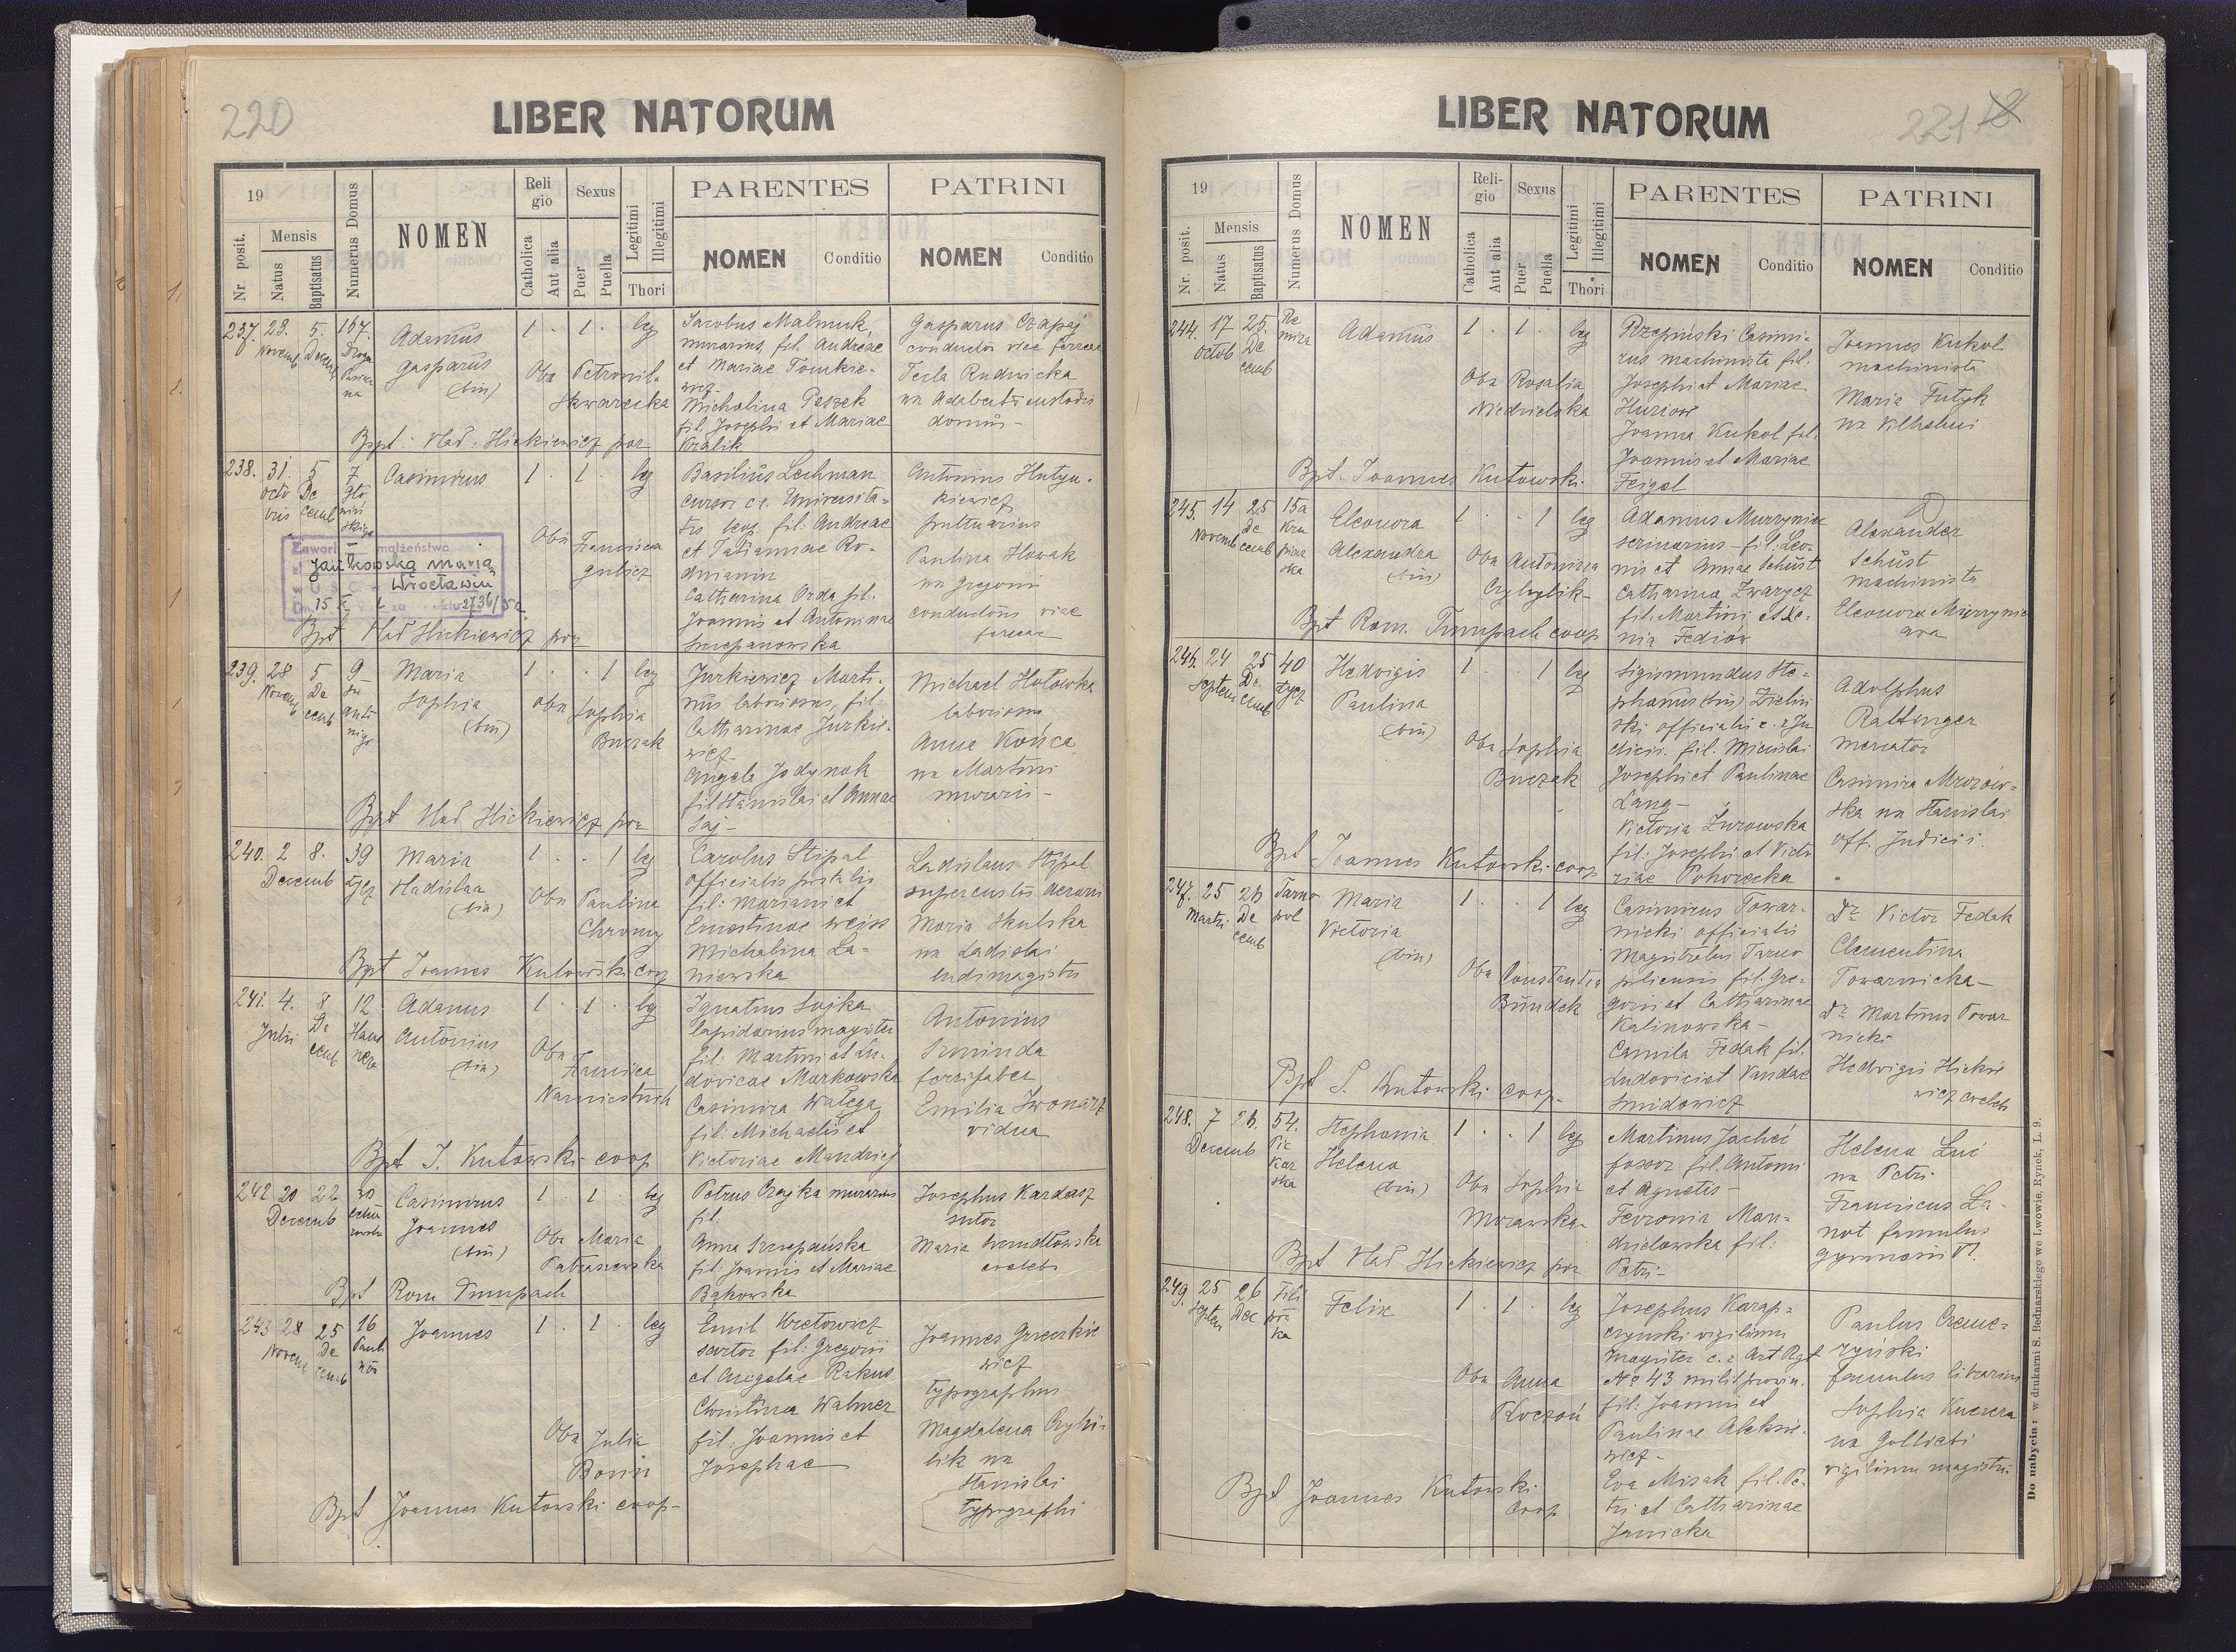 220
LIBER NATORUM
19
Mensis
Nr. posit.
Natus
Baptisatus
Numerus Domus
NOMEN
Religio
Catholica
Aut alia
Sexus
Puer
Puella
Legitimi
Illegitimi
Thori
PARENTES
NOMEN
Conditio
PATRINI
NOMEN
Conditio
237. 29. 5. 167.
Novemb Decemb
Adamus
Gasparus
(bin)
1 . 1 . leg
Obs Petronil.
Skwarecka
Jacobus Malmuk,
murarius, fil. Andreae
et Mariae Tomkie-
wicz
Michalina Peszek
fil. Josephi et Mariae
Kralik
Gasparus Czapaj
conductor viae ferreae
Tecla Rudnicka
ux Adalberti custodis
domus -
Bapt. Wład. Hickiewicz par
238. 31. 5 7
Octobris Decemb
Casimirus
1 . 1 . leg
Obs Francisca
Basilius Lechman
cursor c. r. Universita-
tis fil. Andreae
et Tatiannae Ro-
dnianin
Catharina Orda fil.
Joannis et Antoninae
Szczepanowska
Antonius Hutyn-
kiewicz
Paulina Nowak
ux Gregorii
conductoris viae
ferreae
Zawarł małżeństwo
Jankowską Marią
Wrocławiu
Bpt Wład Hickiewicz par
239. 28 5 9
Novemb Decemb
Maria
Sophia
(bin)
1 . . 1 leg
Obs Sophia
Buczak
Jurkiewicz Marti-
nus laboriosus, fil.
Catharinae Jurkie-
wicz
Angela Jodynak
fil Stanislai et Annae
Saj -
Michael Hołówka
laboriosus
Anna Końca
ux Martini
murarii -
Bpt Wład Hickiewicz par
240. 2 8. 39
Decemb
Maria
Vladislaa
(bin)
1 . . 1 leg
Obs Paulina
Chromy
Carolus Stipal
officialis postalis
fil. Mariani et
Ernestinae Weiss
Michalina La-
niewska
Ladislaus Stipal
Maria Skulska
ux Ladislai
ludimagistri
Bpt Joannes Kutowski coop
241. 4. 8 12
Julii Decemb
Adamus
Antonius
(bin)
1 . 1 . leg
Obs
Ignatius Sojka
lapidarius magister
fil. Martini et Lu-
dovicae Markowska
Casimira Wałęga
fil. Michaelis et
Victoriae Mandrij
Antonius
Sminda
ferrifaber
Emilia Iwonarz
vidua
Bpt J. Kutowski coop
242 20 22 30
Decemb
Casimirus
Joannes
(bin)
1 . 1 . leg
Obs Maria
Patraszewska
Petrus Czajka murarius
fil.
Anna Szczepańska
fil. Joannis et Mariae
Bąkowska
Josephus Kardasz
sutor
Maria
coelebs
Bpt Rom Trumpach
243 28 25 16
Novem Decemb
Joannes
1 . 1 . leg
Obs Julia
Emil Kretowicz
sartor fil: Gregorii
et Angelae Rakus
Christina Walmer
fil: Joannis et
Josephae
Joannes Grzeszkie
wicz
typographus
Magdalena Czyhi-
lik ux
Stanislai
typographi
Bpt Joannes Kutowski coop-
221
LIBER NATORUM
19
Mensis
Nr. posit.
Natus
Baptisatus
Numerus Domus
NOMEN
Religio
Catholica
Aut alia
Sexus
Puer
Puella
Legitimi
Illegitimi
Thori
PARENTES
NOMEN
Conditio
PATRINI
NOMEN
Conditio
244. 17 25.
Octob Decemb
Adamus
1 . 1 . leg
Obs Rosalia
Niedzielska
Rzepiński Casimi-
rus machinista fil:
Josephi et Mariae
Huziow
Joanna Kukol fil.
Joannis et Mariae
Feigel
Joannes Kukol
machinista
Maria Futyk
ux Vilhelmi
Bpt. Joannes Kutowski
245. 14 25 15a
Novemb Decemb
Eleonora
Alexandra
(bin)
1 . . 1 leg
Obs Antonina
Czyhylik
Adamus Murzynicz
serinarius - fil: Leo-
nis et Annae Schüst
Catharina Zwarycz
fil. Martini et Xe-
nia Fediów
Alexander
Schüst
machinista
Eleonora
Bpt Rom. Trumpach coop
246. 24 25 40
Septem Decemb
Hedvigis
Paulina
(bin)
1 . . 1 leg
Obs Sophia
Buczak
Sigismundus Ste-
phanus (bin) Zieliń
ski officialis c. r. Ju
dicii. fil. Mieislai
Josephi et Paulinae
Lang -
Victoria Żurowska
fil: Josephi et Victo
riae Pohorecka
Adolphus
Rattinger
mercator
Casimira Mrozow-
ska ux Stanislai
off. Judicii.
Bpt Joannes Kutowski coop
247. 25 26 Tarno
pol
Martii Decemb
Maria
Victoria
(bin)
1 . . 1 leg
Obs Constantia
Bundek
Casimirus Towar-
nicki officialis
Magistratus Tarno
poliensis fil: Gre-
gorii et Catharinae
Kalinowska -
Camila Fedak fil.
Ludovici et Vandae
Smidowicz
Dr. Victor Fedak
Clementina
Towarnicka -
Dr. Martinus Towar
nicki
Hedvigis Hickie
wicz coelebs
Bpt J. Kutowski coop-
248. 7 26. 54.
Decemb
Pie
kar
ska
Stephania
Helena
(bin)
1 . . 1 leg
Obs Sophia
Morawska
Martinus Jacheć
fossor fil. Antoni
et Agnetis -
Fevronia Man-
dzielowska fil:
Petri -
Helena Luć
ux Petri
Franciscus La-
not famulus
gymnasii VI.
Bpt Wład Hickiewicz par
249. 25 26
Septem Dec
Felix
1 . 1 . leg
Obs Anna
Koczoń
Josephus Karap-
czyński vigilum
magister c. r. Art Rgt
No 43
fil: Joannis et
Paulinae Aleksie-
wicz -
Eva Misak fil. Pe-
tri et Catharinae
Janicka
Paulus Czeme-
ryński
famulus librarius
Sophia Kucera
ux Gottliebi
vigilum magistri
Bpt Joannes Kutowski
coop
Do nabycia: w drukarni S. Bednarskiego we Lwowie, Rynek, L. 9.